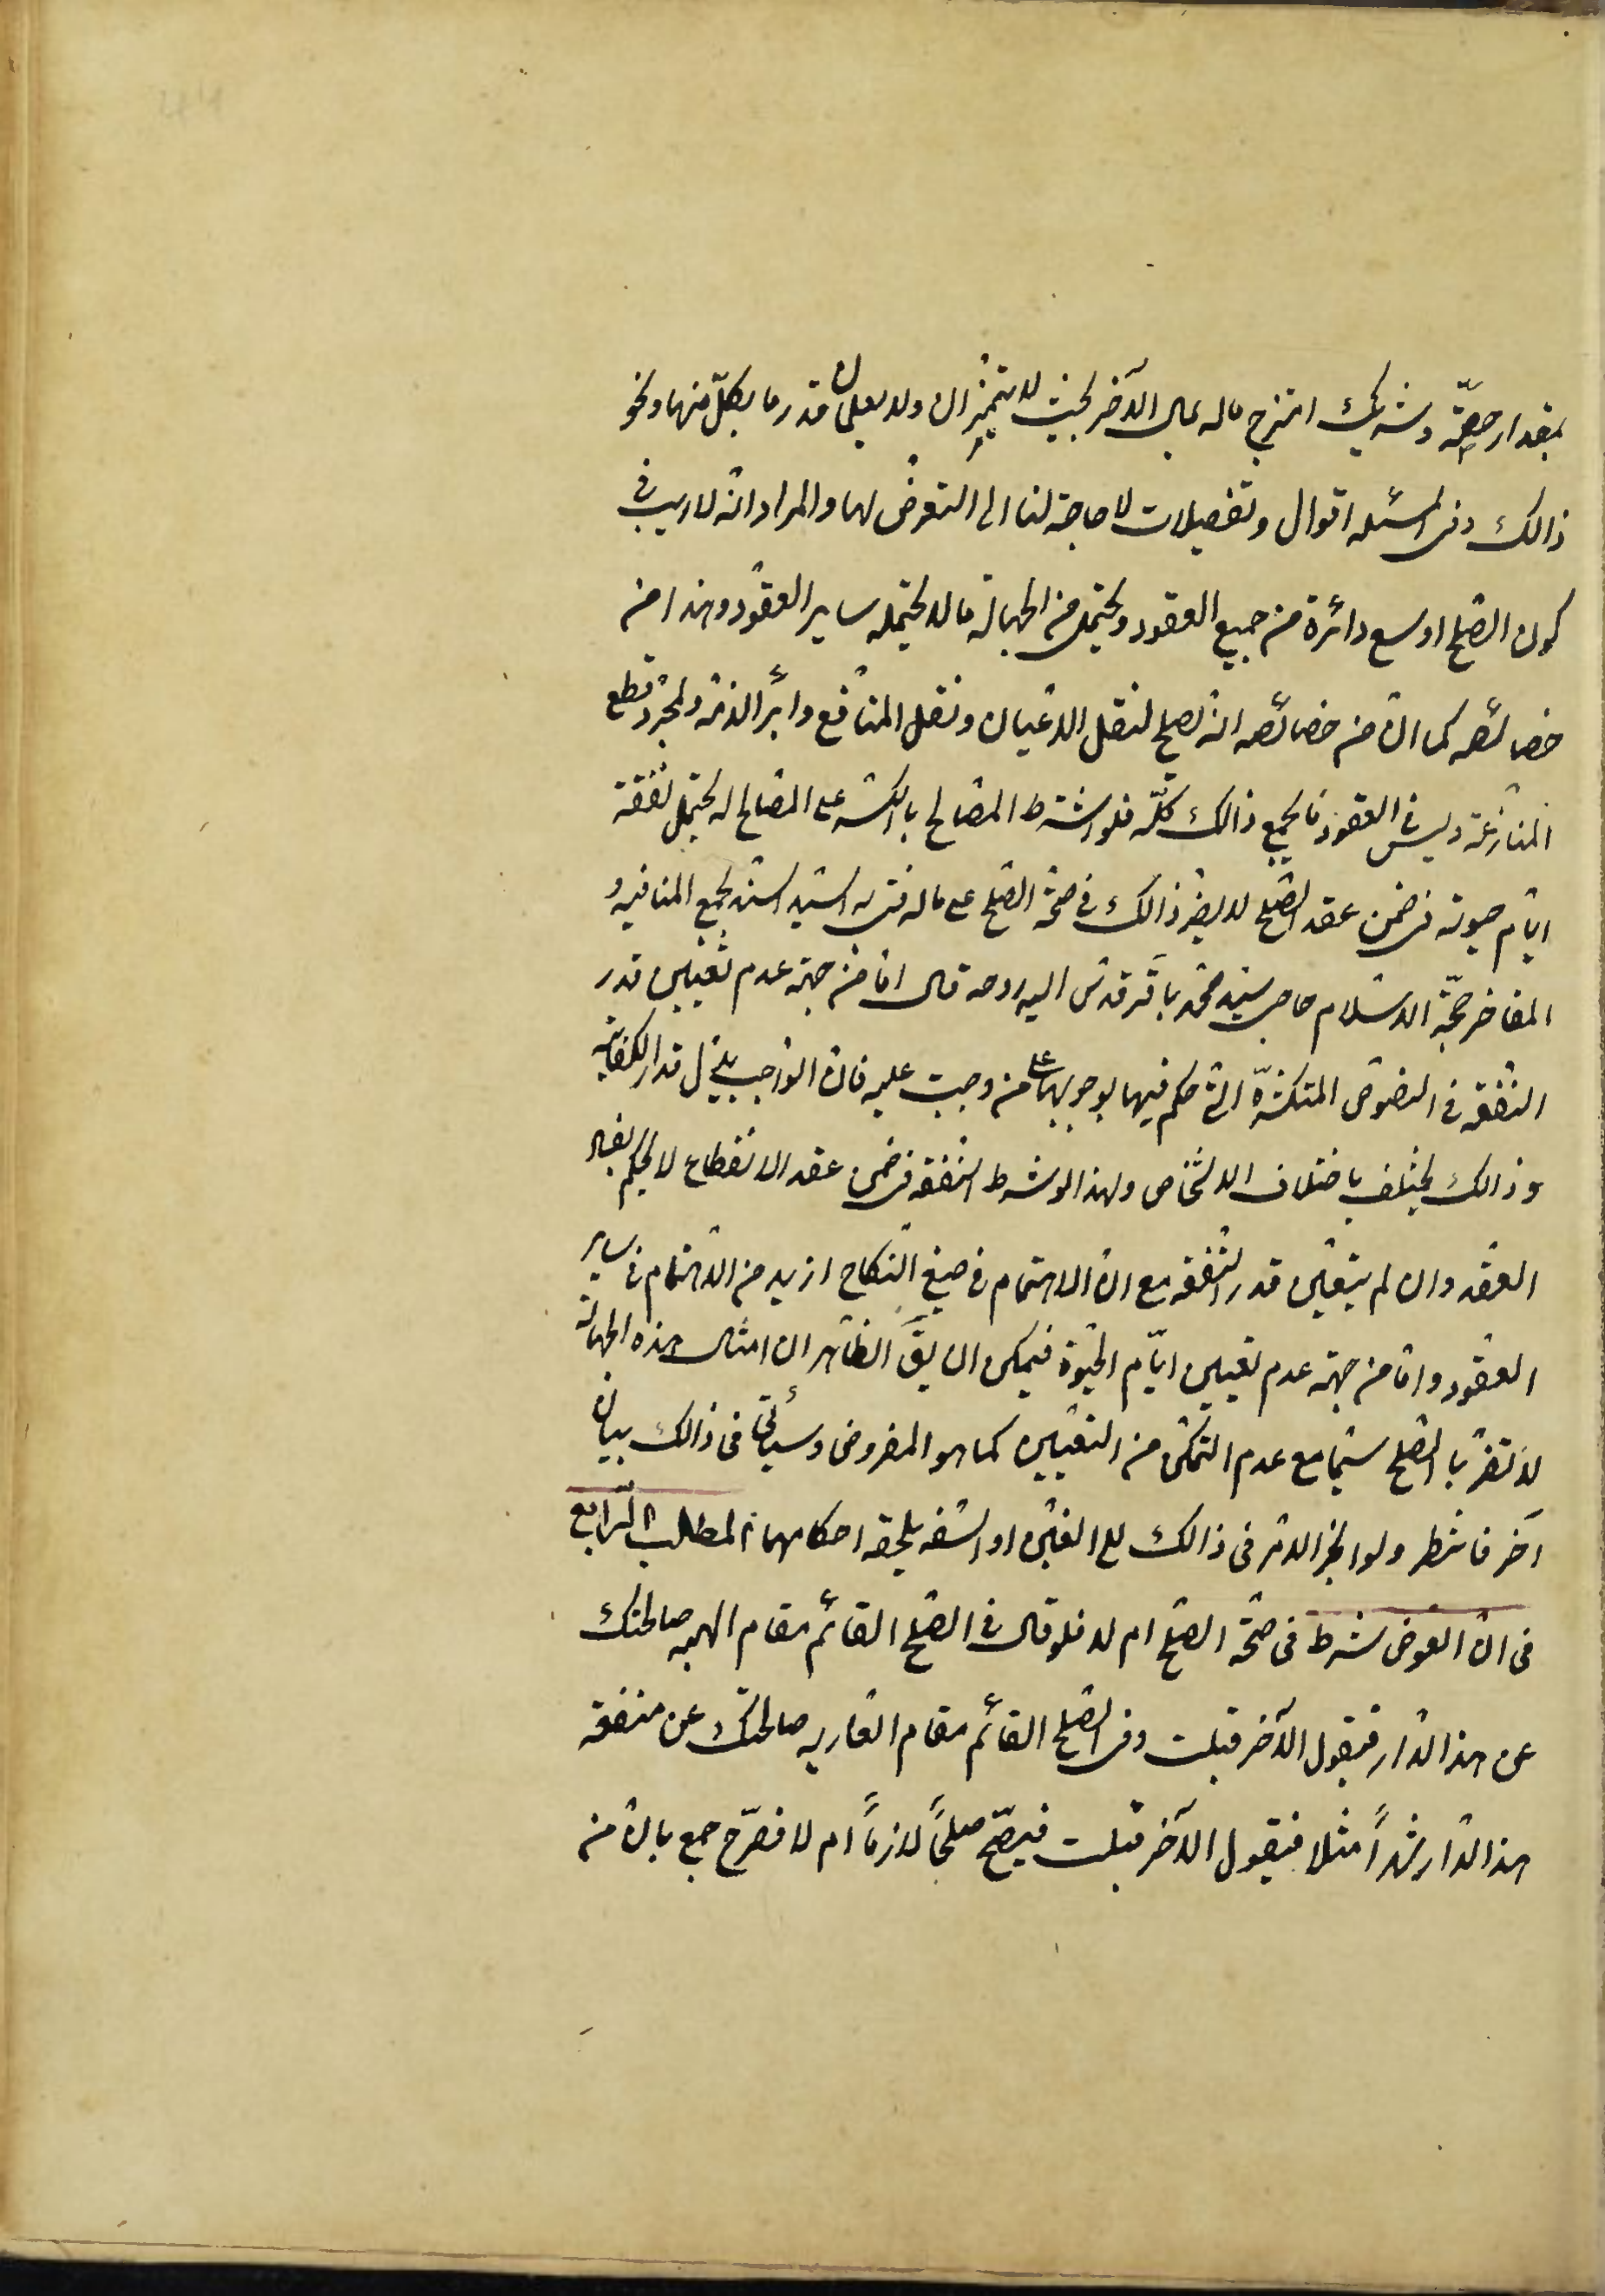 بمقدار حصته وشريك امتزج ماله بمال الآخر بحيث لا يتميزان ولا يعلمان قدر ما بكلّ منهما ونحو
ذالك وفى المسئله اقوال وتفصيلات لا حاجة لنا الى التعرض لها والمراد انه لا ريب فى
كون الصّلح اوسع دائرة من جميع العقود ويحتمل من الجهالة ما لا يحتمله ساير العقود وهذا من
خصائصه كما انّ من خصائصه انه يصلح لنقل الاعيان ونقل المنافع وابرأ الذمه ولمجرّد قطع
المنازعة وليس فى العقود ما يجمع ذالك كلّه فلو اشترط المصالح بالكسر على المصالح له تحمل نفقة
ايّام حيوته فى ضمن عقد الصّلح لا يضر ذالك فى صحّة الصّلح على ما له السيد السند لجمع المناقب و
المفاخر حجّة الاسلام حاجى سيّد محمّد باقر قدس اليه روحه قال امّا من جهة عدم تعيين قدر
النّفقه فى النصوص المتكثرّة الّتى حكم فيها بوجوبها على من وجبت عليه فانّ الواجب بذل قدر الكفاية
وذالك يختلف باختلاف الاشخاص ولهذا لو شرط النفقه فى ضمن عقد الانقطاع لا يحكم بفساد
العقد وان لم يتعيّن قدر النّفقه مع انّ الاهتمام فى صيغ النّكاح ازيد من الاهتمام فى ساير
العقود وامّا من جهة عدم تعيين ايّام الحيوة فيمكن ان يقَ الظاهر ان امثال هذه الجهالة
لا تضرّ بالصّلح سيّما مع عدم التمكّن من التعيين كما هو المفروض وسيأتى فى ذالك بيان
آخر فانتظر ولو انجر الامر فى ذالك الى الغبن او السّفه يلحقه احكامهما المطلب الرّابع
فى انّ العوض شرط فى صحّة الصّلح ام لا فلو قال فى الصّلح القائم مقام الهبه صالحتك
عن هذا الدّار فيقول الآخر قبلت وفى الصّلح القائم مقام العاريه صالحتك عن منفعة
هذا الدّار شهراً مثلا فيقول الآخر قبلت فيصحّ صلحاً لازماً ام لا فصرّح جمع بانّ من